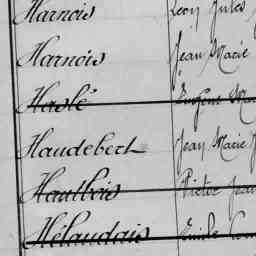 Harnois Léon Jules
Harnois Jean Marie
Haslé Eugène Ma
Haudebert Jean Marie
Hautbois Victor Jean
Hélaudais Emile